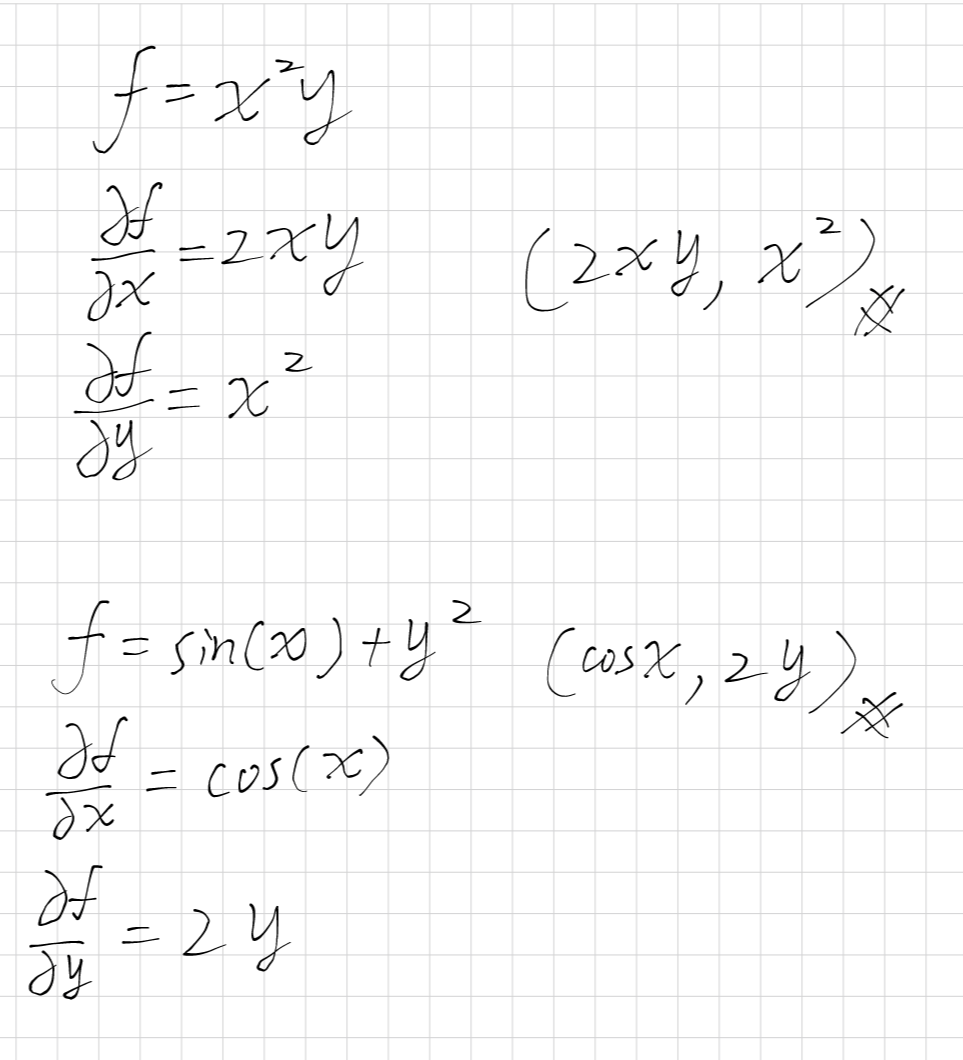 f = x²y
∂f/∂x = 2xy
(2xy, x²)
∂f/∂y = x²
f = sin(x) + y²
(cosx, 2y)
∂f/∂x = cos(x)
∂f/∂y = 2y